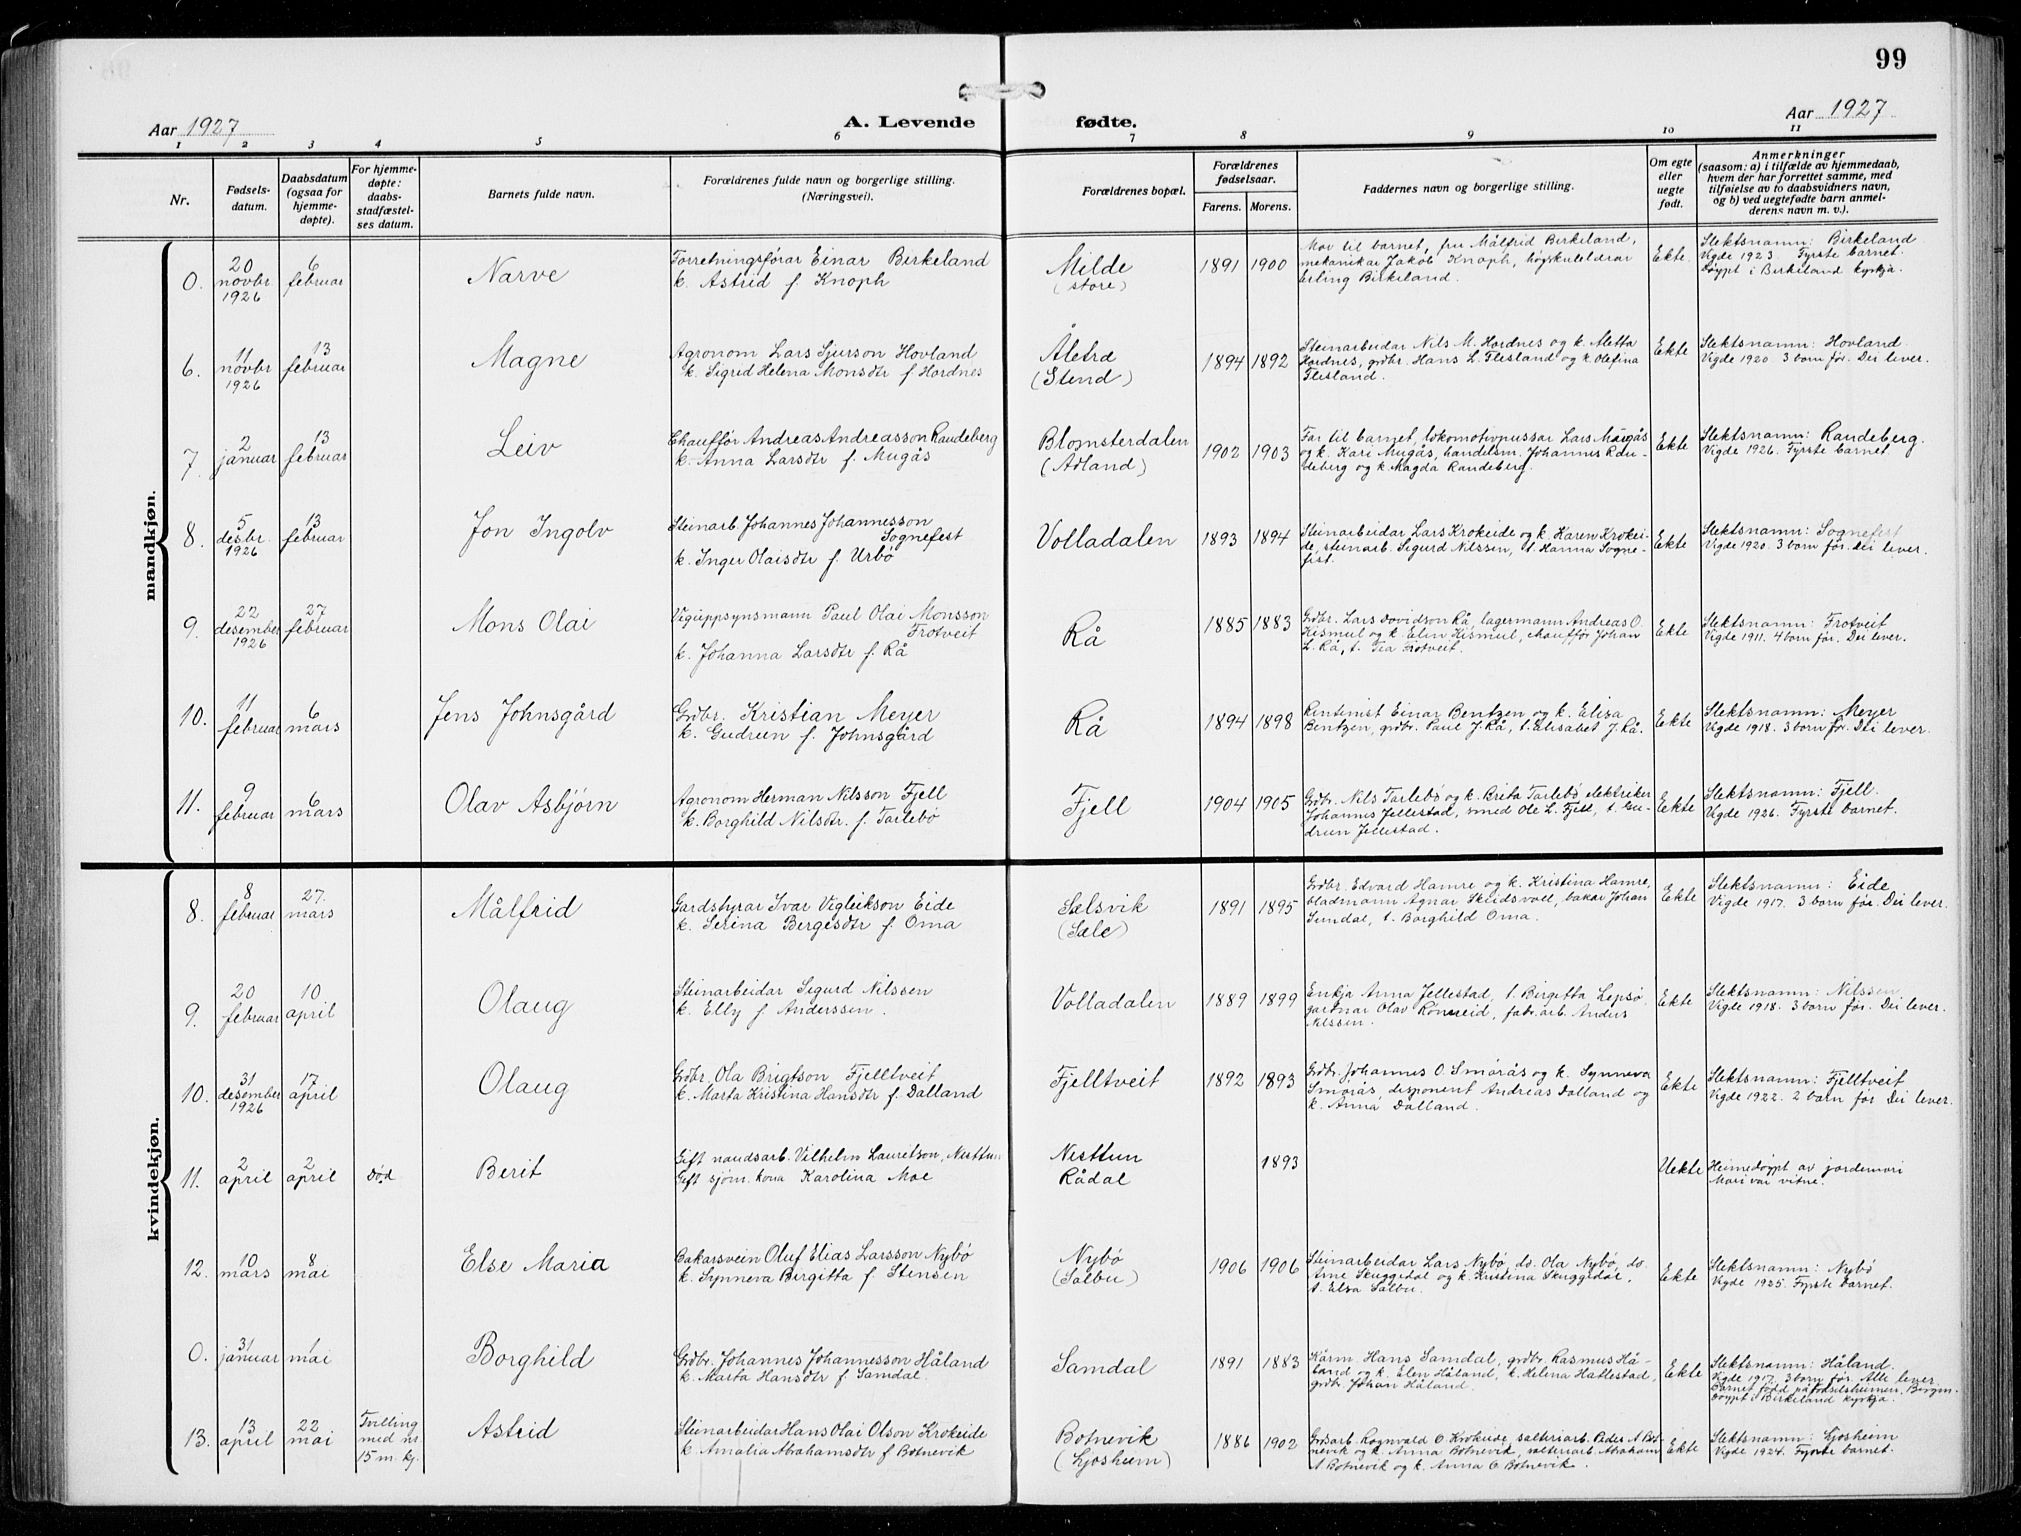 99
Aar 1927 A. Levende fødte. Aar 1927
1 2 3 4 5 6 7 8 9 10 11
Nr. Fødsels-datum. Daabsdatum (ogsaa for hjemme-døpte). For hjemme-døpte: daabs-stadfæstel-ses datum. Barnets fulde navn. Forældrenes fulde navn og borgerlige stilling. (Næringsvei). Forældrenes bopæl. Forældrenes fødselsaar. Farens. Morens. Faddernes navn og borgerlige stilling. Om egte eller uegte født. Anmerkninger (saasom: a) i tilfælde av hjemmedaab, hvem der har forrettet samme, med tilføielse av to daabsvidners navn, og b) ved uegtefødte barn anmel-derens navn m. v.).
mandkjøn.
0. 20 novbr 1926 6 februar Narve Forretningsførar Einar Birkeland Milde 1891 1900 Mor til barnet, fru Målfrid Birkeland, Ekte Slektsnamn: Birkeland
k. Astrid f. Knoph (store) mekanikar Jakob Knoph, høgskulelærar Vigde 1923. Fyrste barnet.
Erling Birkeland. Døypt i Birkeland kyrkja.
6. 11 novbr 1926 13 februar Magne Agronom Lars Sjurson Hovland Åletræ 1894 1892 Steinarbeidar Nils M. Hordnes og k. Metta Ekte Slektsnamn: Hovland.
k. Sigrid Helena Monsdtr f. Hordnes (Stend) Hordnes, grdbr. Hans L. Flesland og k. Olefina Vigde 1920. 3 born før. Dei lever.
Flesland.
7. 2 januar 13 februar Leiv Chauffør Andreas Andreasson Raudeberg Blomsterdalen 1902 1903 Far til barnet, lokomotivpussar Lars Mugås Ekte Slektsnamn: Raudeberg.
k. Anna Larsdtr f. Mugås (Ådland) og k. Kari Mugås, handelsm. Johannes Rau- Vigde 1926. Fyrste barnet.
deberg og k. Magda Raudeberg.
8. 5 desbr. 1926 13 februar Jon Ingolv Steinarb. Johannes Johannesson Volladalen 1893 1894 Steinarbeidar Lars Krokeide og k. Karen Krokei- Ekte Slektsnamn: Sognefest
Sognefest de, steinarb. Sigurd Nilssen, t. Hanna Sogne- Vigde 1920. 3 born før. Dei lever.
k. Inger Olaisdtr f. Urbø fest.
9. 22 desember 1926 27 februar Mons Olai Veguppsynsmann Paul Olai Monsson Rå 1885 1883 Grdbr. Lars Davidson Rå, lagermann Andreas O. Ekte Slektsnamn: Frotveit
Frotveit Kismul og k. Elen Kismul, chauffør Johan Vigde 1911. 4 born før. Dei lever.
k. Johanna Larsdtr f. Rå L. Rå, t. Tea Frotveit.
10. 11 februar 6 mars Jens Johnsgård Grdbr. Kristian Meyer Rå 1894 1898 Rentenist Einar Bentzen og k. Elisa Ekte Slektsnamn: Meyer
k. Gudrun f. Johnsgård Bentzen, grdbr. Paul J. Rå, t. Elisabet J. Rå. Vigde 1918. 3 born før. Dei lever.
11. 9 februar 6 mars Olav Asbjørn Agronom Herman Nilsson Fjell Fjell 1904 1905 Grdbr. Nils Tarlebø og k. Brita Tarlebø elektriker Ekte Slektsnamn: Fjell.
k. Borghild Nilsdtr. f. Tarlebø Johannes Jellestad, smed Ole L. Fjell, t. Gu- Vigde 1926. Fyrste barnet.
drun Jellestad.
kvindekjøn.
8. 8 februar 27. mars Målfrid Gardstyrar Ivar Vigleikson Eide Sælsvik 1891 1895 Grdbr. Edvard Hamre og k. Kristina Hamre, Ekte Slektsnamn: Eide
k. Serina Bergesdtr f. Oma (Sæle) bladmann Agnar Skeidsvoll, bakar Johan Vigde 1917. 3 born før. Dei lever.
Sundal, t. Borghild Oma.
9. 20 februar 10 april Olaug Steinarbeidar Sigurd Nilssen Volladalen 1889 1899 Enkja Anna Jellestad, t. Birgitta Lepsø Ekte Slektsnamn: Nilssen
k. Elly f. Anderssen. gartnar Olav, fabr.arb. Anders Vigde 1918. 3 born før. Dei lever.
Nilssen.
10. 31 desember 1926 17 april Olaug Grdbr. Ola Brigtson Fjelltveit Fjelltveit 1892 1893 Grdbr. Johannes O. Smørås og k. Synneva Ekte Slektsnamn: Fjelltveit
k. Marta Kristina Hansdtr f. Dalland Smørås, disponent Andreas Dalland og Vigde 1922. 2 born før Dei lever.
k. Anna Dalland.
11. 2 april 2 april død Berit Gift naudsarb. Vilhelm Lauritson, Nesttun Nesttun 1893 Uekte Heimedøypt av jordemori
Gift sjøm. kona Karolina Moe Rådal Mori var vitne.
12. 10 mars 8 mai Else Maria Bakarsvein Oluf Elias Larsson Nybø Nybø 1906 1906 Steinarbeidar Lars Nybø, do. Ola Nybø, do. Ekte Slektsnamn: Nybø
k. Synneva Birgitta f. Stensen (Salbu) Arne Skuggedal og k. Kristina Skuggedal, Vigde 1925. Fyrste barnet.
t. Elsa Salbu.
0. 31 januar 1 mai Borghild Grdbr. Johannes Johannesson Håland Samdal 1891 1883 Kårm. Hans Samdal, grdbr. Rasmus Hå- Ekte Slektsnamn: Håland.
k. Marta Hansdtr f. Samdal. land og k. Elen Håland, k. Helena Hatlestad, Vigde 1917. 3 born før. Alle lever.
grdbr. Johan Håland. Barnet född på födselsheimen, Bergen.
Døypt i Birkeland kyrkja.
13. 13 april 22 mai Tvilling med nr 15 m. kj. Astrid Steinarbeidar Hans Olai Olson Krokeide Botnevik 1886 1902 Grdsarb. Rognvald O Krokeide salteriarb. Peder A Bot- Ekte Slektsnamn: Ljosheim
k. Amalia Abrahamsdtr f. Botnevik (Ljosheim) nevik og k. Anna Botnevik, salteriarb. Abraham Vigde 1924. Fyrste barnet.
A Botnevik og k. Anna O Botnevik.